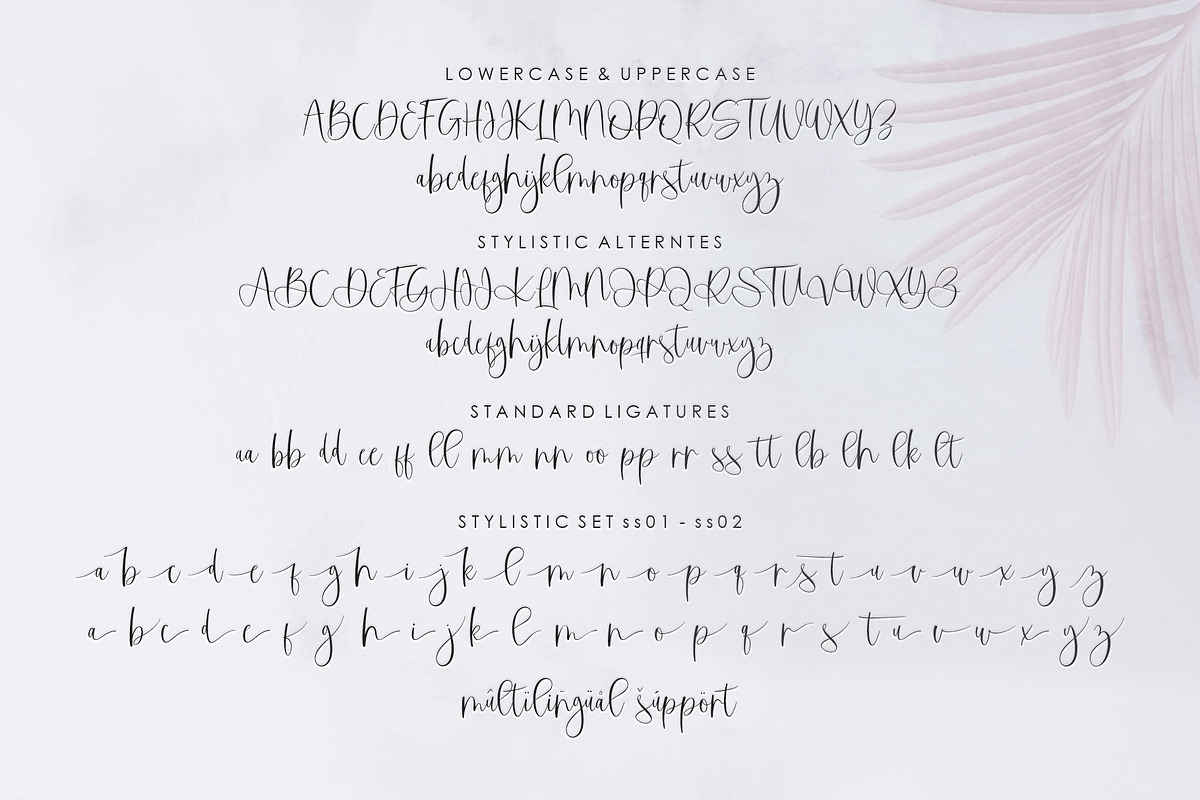 LOWERCASE & UPPERCASE
ABCDEFGHIJKLMNOPQRSTUVWXYZ
abcdefghijklmnopqrstuvwxyz
STYLISTIC ALTERNTES
ABCDEFGHIJKLMNOPQRSTUVWXYZ
abcdefghijklmnopqrstuvwxyz
STANDARD LIGATURES
aa bb dd ee ff ll mm nn oo pp rr ss tt lb lh lk lt
STYLISTIC SET ss01 - ss02
a b c d e f g h i j k l m n o p q r s t u v w x y z
a b c d e f g h i j k l m n o p q r s t u v w x y z
múltïlïñgüål šúppört